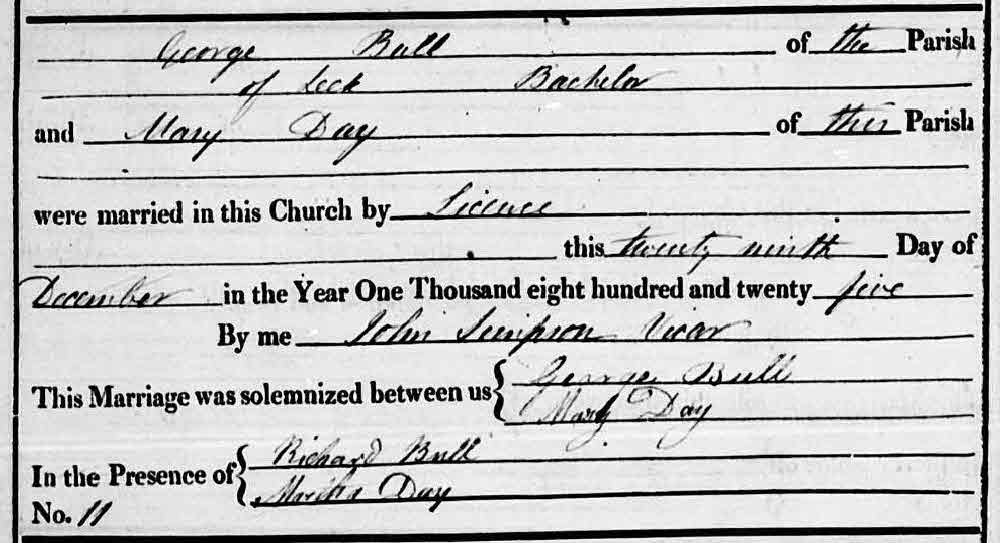 George Bull of the Parish
of Leek Bachelor
and Mary Day of this Parish
were married in this Church by Licence
this twenty ninth Day of
December in the Year One Thousand eight hundred and twenty five
By me John Simpson Vicar
This Marriage was solemnized between us { George Bull
Mary Day
In the Presence of { Richard Bull
Martha Day
No. 11